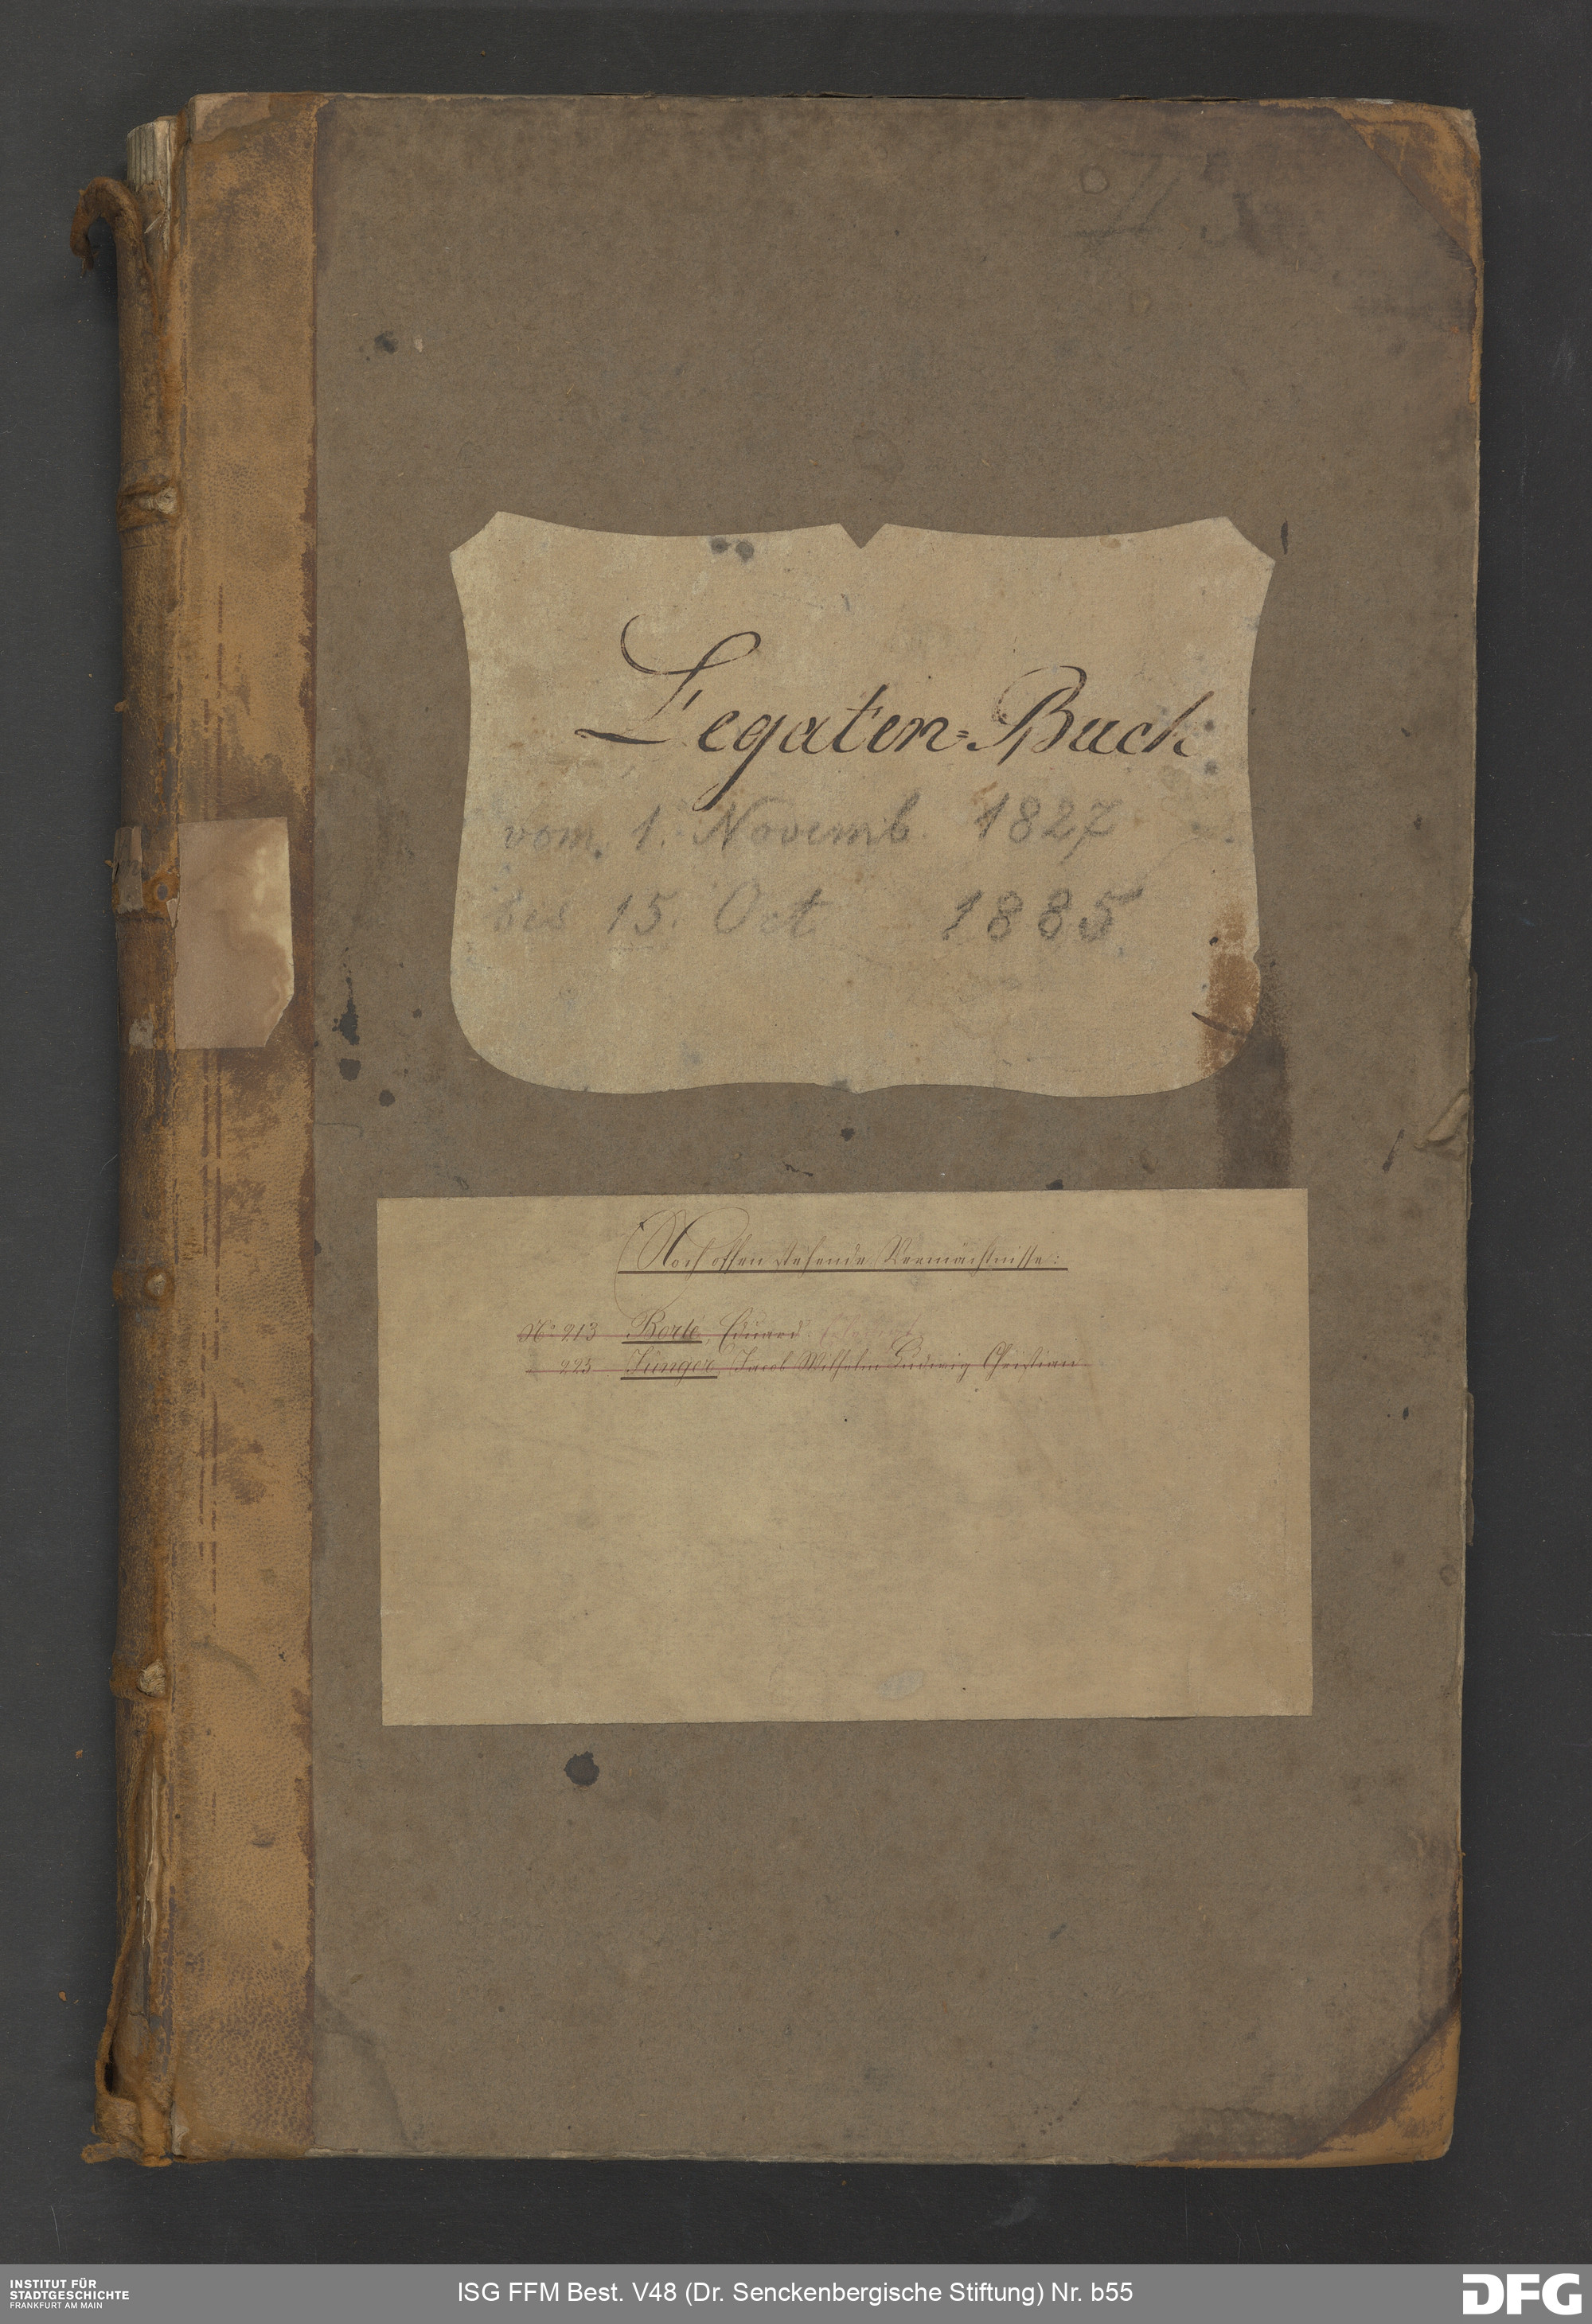 Legaten=Buch
vom 1. Novemb. 1827
bis 15. Oct 1885.
Noch offen stehende Vermächtnisse:
No 213 Borté, Eduard.
223 Jünger, Jacob Wilhelm Ludwig Christian
INSTITUT FÜR
STADTGESCHICHTE
FRANKFURT AM MAIN
ISG FFM Best. V48 (Dr. Senckenbergische Stiftung) Nr. b55
DFG